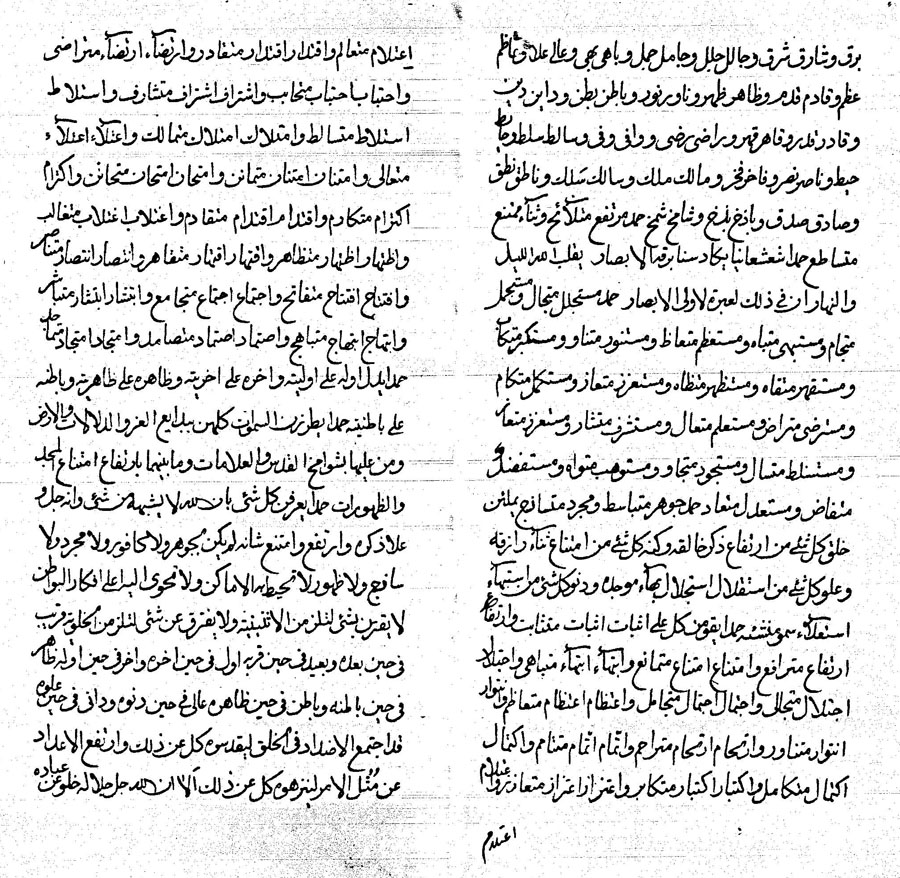 برق وشارق شرق وجالل جلل وجامل جمل وباهي بهي وعالي علا وعاظم
عظم وقادم قدم وظاهر ظهر وناور نور وباطن بطن ودابن دبن
وقادر قدر وقاهر قهر وراضي رضي ووافي وفي وسالط سلط وحابط
حبط وناصر نصر وفاخر فخر ومالك ملك وسالك سلك وناطق نطق
وصادق صدق وباذخ بذخ وشامخ شمخ حمد مرتفع متلائح وثناء ممتنع
متساطع حمدا شعشعانيا يكاد سنا برقه الابصار يقلب الله الليل
والنهار ان في ذلك لعبرة لاولى الابصار حمد مستجلل متجال ومستجمل
متجام ومستبهي متباه ومستعظم متعاظ ومستنور متناو ومستكبر متكاب
ومستقهر متقاه ومستظهر متظاه ومستعزز متعاز ومستكمل متكام
ومسترضى متراض ومستعلم متعال ومستشرف متشار ومستعزز متعاز
ومستسلط متسال ومستجود متجاو ومستوهب متواه ومستفضل
متفاض ومستعدل متعاد حمد جوهر متباسط ومجرد متساذج
خلق كل شئ من ارتفاع ذكر خالقه وكنه كل شئ من امتناع ثناء رازقه
وعلو كل شئ من استقلال استجلال بهاء موحده ودنو كل شئ من استبهاء
استعلاء سمو منشئه حمدا يفوق من كل على اثبات اثبات متثابت وارتفاع
ارتفاع مترافع وامتناع امتناع متمانع وابتهاء ابتهاء متباهي واجتلال
اجتلال متجالى واجتمال اجتمال متجامل واعتظام اعتظام متعاظم وانتوار
انتوار متناور وارتحام ارتحام متراحم واتمام اتمام متتامم واكتمال
اكتمال متكامل واكتبار اكتبار متكابر واعتزاز اعتزاز متعازز واعتلام
اعتلام
اعتلام متعالم واقتدار اقتدار متقادر وارتضاء ارتضاء متراضى
واحتباب احتباب متحابب واشتراف اشتراف متشارف واستلاط
استلاط متسالط وامتلاك امتلاك متمالك واعتلاء اعتلاء
متعالى وامتنان امتنان متمانن وامتحان امتحان متحانن واكترام
اكترام متكارم واقتدام اقتدام متقادم واغتلاب اغتلاب متغالب
واظتهار اظتهار متظاهر واقتهار اقتهار متقاهر وانتصار انتصار متناصر
وافتتاح افتتاح متفاتح واجتماع اجتماع متجامع وابتشار ابتشار متباشر
وابتهاج ابتهاج متباهج واصتماد اصتماد متصامد وامتجاد امتجاد متماجد
حمدا يدل اوله على اوليته واخره على اخريته وظاهره على ظاهريته وباطنه
على باطنيته حمدا يطرزن السموات كلهن ببدايع العز والدلالات والارض
ومن عليها بشوامخ القدس والعلامات وما بينهما بارتفاع امتناع المجد
والظهورات حمدا يعرفن كل شئ بان الله لا يشبهه من شئ وانه جل و
علا ذكره وارتفع وامتنع شانه لم يكن بجوهر ولا كافور ولا مجرد ولا
ساذج ولا ظهور لا تحيط به الاماكن ولا تحوى اليه اعلى افكار البواطن
لا يقترن بشئ لتلزمن الاثنينية ولا يفرق عن شئ لتلزمن الخلق قريب
فى حين بعده وبعيد فى حين قربه اول فى حين اخره واخر فى حين اوله ظاهر
فى حين باطنه وباطن فى حين ظاهره عالى فى حين دنوه ودانى فى حين علوه
قد اجتمع الاضداد فى الخلق ليقدسوه كل عن ذلك وارتفع الاعداد
عن مثل الامر لينزهوه كل عن ذلك الا ان الله جل جلاله خلو عن عباده